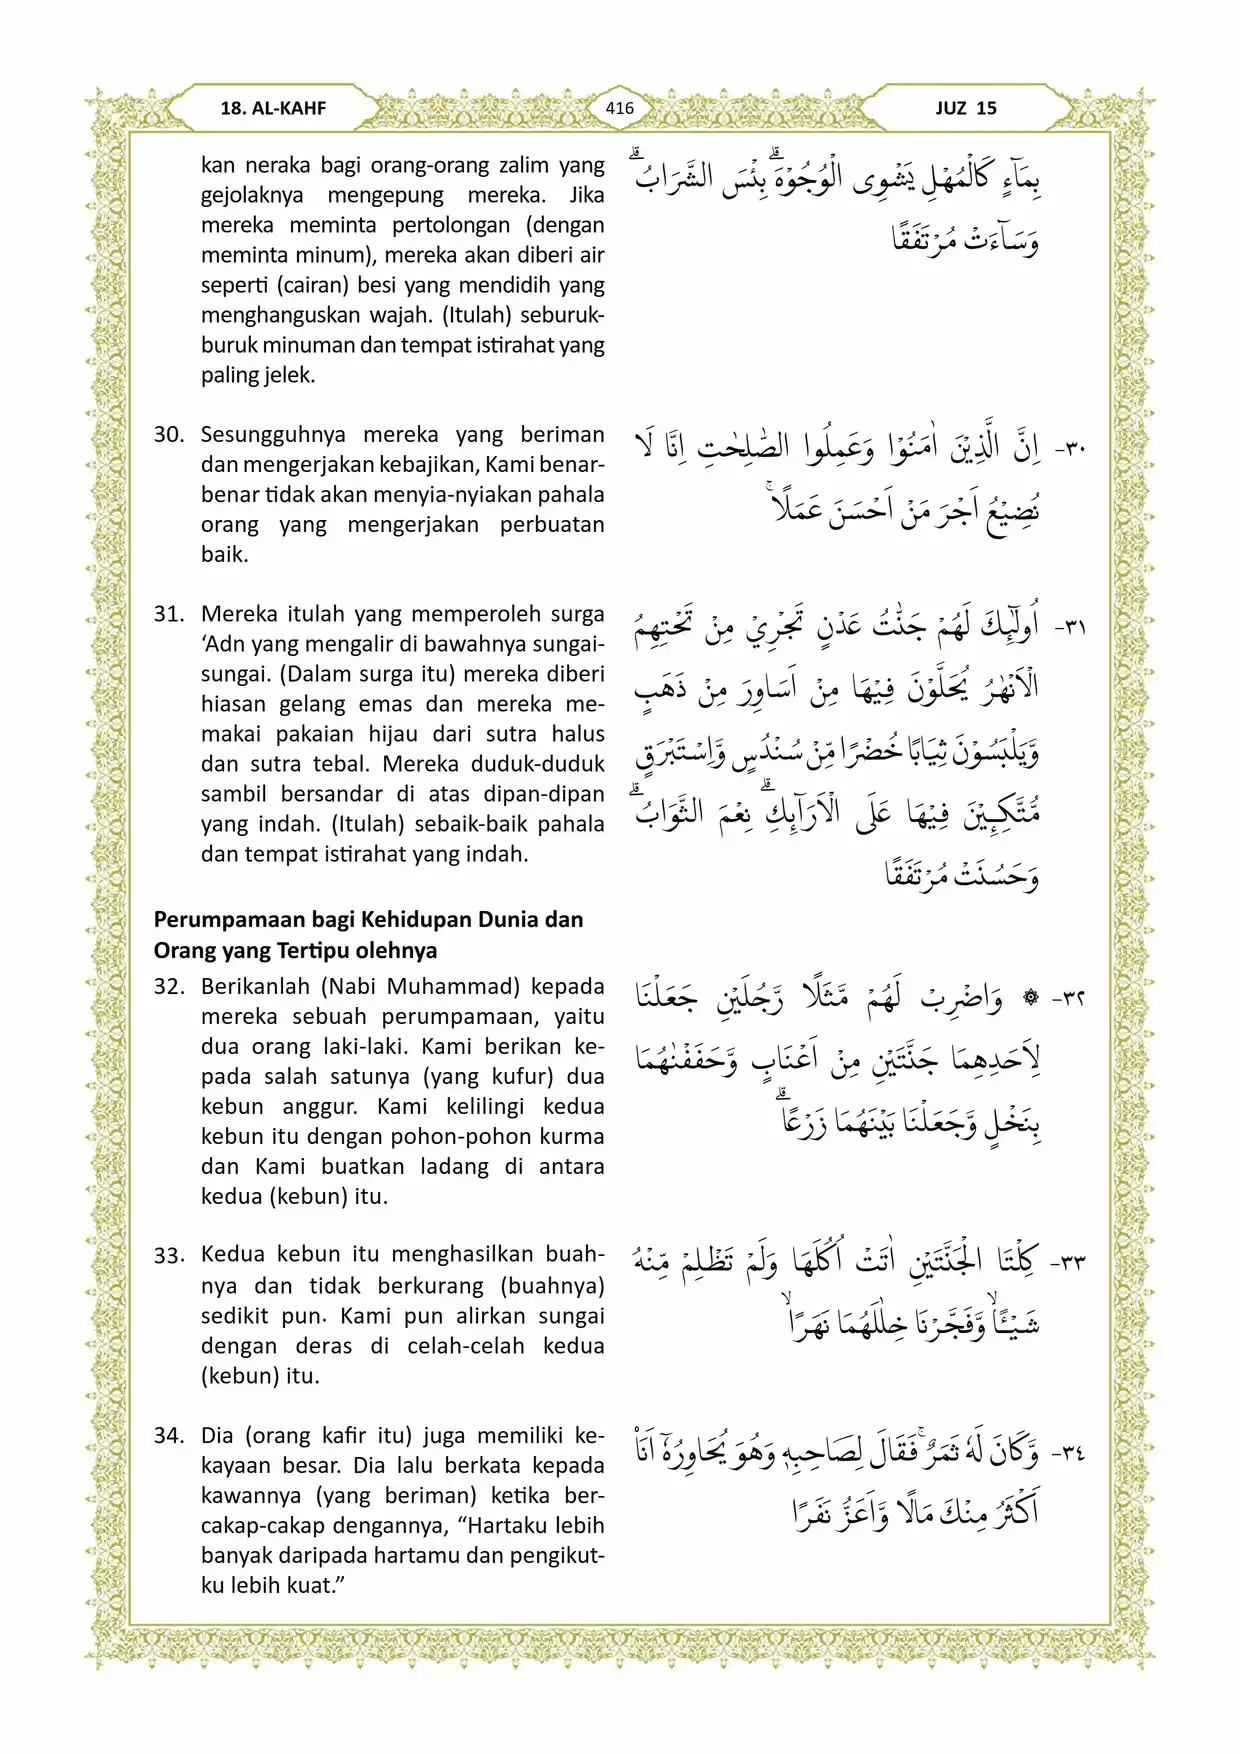 18. AL-KAHF
416
JUZ 15
kan neraka bagi orang-orang zalim yang
gejolaknya mengepung mereka. Jika
mereka meminta pertolongan (dengan
meminta minum), mereka akan diberi air
seperti (cairan) besi yang mendidih yang
menghanguskan wajah. (Itulah) seburuk-
buruk minuman dan tempat istirahat yang
paling jelek.
بِمَاۤءٍ كَالْمُهْلِ يَشْوِى الْوُجُوْهَۗ بِئْسَ الشَّرَابُۗ
وَسَاۤءَتْ مُرْتَفَقًا
30. Sesungguhnya mereka yang beriman
dan mengerjakan kebajikan, Kami benar-
benar tidak akan menyia-nyiakan pahala
orang yang mengerjakan perbuatan
baik.
٣٠- اِنَّ الَّذِيْنَ اٰمَنُوْا وَعَمِلُوا الصّٰلِحٰتِ اِنَّا لَا
نُضِيْعُ اَجْرَ مَنْ اَحْسَنَ عَمَلًاۚ
31. Mereka itulah yang memperoleh surga
‘Adn yang mengalir di bawahnya sungai-
sungai. (Dalam surga itu) mereka diberi
hiasan gelang emas dan mereka me-
makai pakaian hijau dari sutra halus
dan sutra tebal. Mereka duduk-duduk
sambil bersandar di atas dipan-dipan
yang indah. (Itulah) sebaik-baik pahala
dan tempat istirahat yang indah.
٣١- اُولٰۤىِٕكَ لَهُمْ جَنّٰتُ عَدْنٍ تَجْرِيْ مِنْ تَحْتِهِمُ
الْاَنْهٰرُ يُحَلَّوْنَ فِيْهَا مِنْ اَسَاوِرَ مِنْ ذَهَبٍ
وَّيَلْبَسُوْنَ ثِيَابًا خُضْرًا مِّنْ سُنْدُسٍ وَّاِسْتَبْرَقٍ
مُّتَّكِـِٕيْنَ فِيْهَا عَلَى الْاَرَاۤىِٕكِۗ نِعْمَ الثَّوَابُۗ
وَحَسُنَتْ مُرْتَفَقًا
Perumpamaan bagi Kehidupan Dunia dan
Orang yang Tertipu olehnya
32. Berikanlah (Nabi Muhammad) kepada
mereka sebuah perumpamaan, yaitu
dua orang laki-laki. Kami berikan ke-
pada salah satunya (yang kufur) dua
kebun anggur. Kami kelilingi kedua
kebun itu dengan pohon-pohon kurma
dan Kami buatkan ladang di antara
kedua (kebun) itu.
٣٢- ۞ وَاضْرِبْ لَهُمْ مَّثَلًا رَّجُلَيْنِ جَعَلْنَا
لِاَحَدِهِمَا جَنَّتَيْنِ مِنْ اَعْنَابٍ وَّحَفَفْنٰهُمَا
بِنَخْلٍ وَّجَعَلْنَا بَيْنَهُمَا زَرْعًاۗ
33. Kedua kebun itu menghasilkan buah-
nya dan tidak berkurang (buahnya)
sedikit pun. Kami pun alirkan sungai
dengan deras di celah-celah kedua
(kebun) itu.
٣٣- كِلْتَا الْجَنَّتَيْنِ اٰتَتْ اُكُلَهَا وَلَمْ تَظْلِمْ مِّنْهُ
شَيْـًٔاۙ وَّفَجَّرْنَا خِلٰلَهُمَا نَهَرًاۙ
34. Dia (orang kafir itu) juga memiliki ke-
kayaan besar. Dia lalu berkata kepada
kawannya (yang beriman) ketika ber-
cakap-cakap dengannya, “Hartaku lebih
banyak daripada hartamu dan pengikut-
ku lebih kuat.”
٣٤- وَّكَانَ لَهٗ ثَمَرٌۚ فَقَالَ لِصَاحِبِهٖ وَهُوَ يُحَاوِرُهٗٓ اَنَا۠
اَكْثَرُ مِنْكَ مَالًا وَّاَعَزُّ نَفَرًا